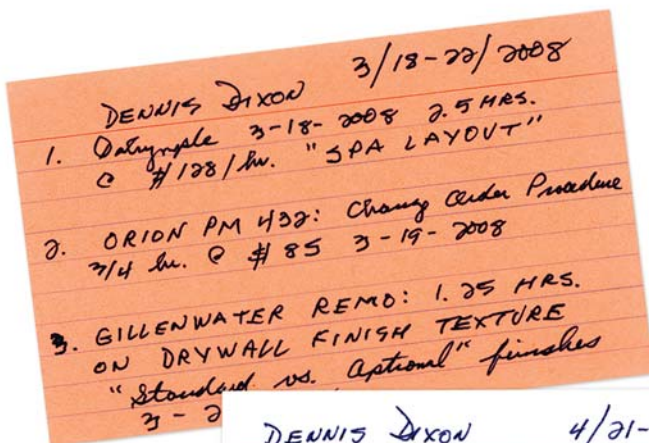 3/18-22/2008
DENNIS DIXON
1. Dalrymple 3-18-2008 2.5 HRS.
@ $128/hr. "SPA LAYOUT"
2. ORION PM 432: Change Order Procedure
3/4 hr. @ $85 3-19-2008
3. GILLENWATER REMO: 1.25 HRS.
ON DRYWALL FINISH TEXTURE
"Standard vs. Optional" finishes
3-2
DENNIS DIXON 4/21-